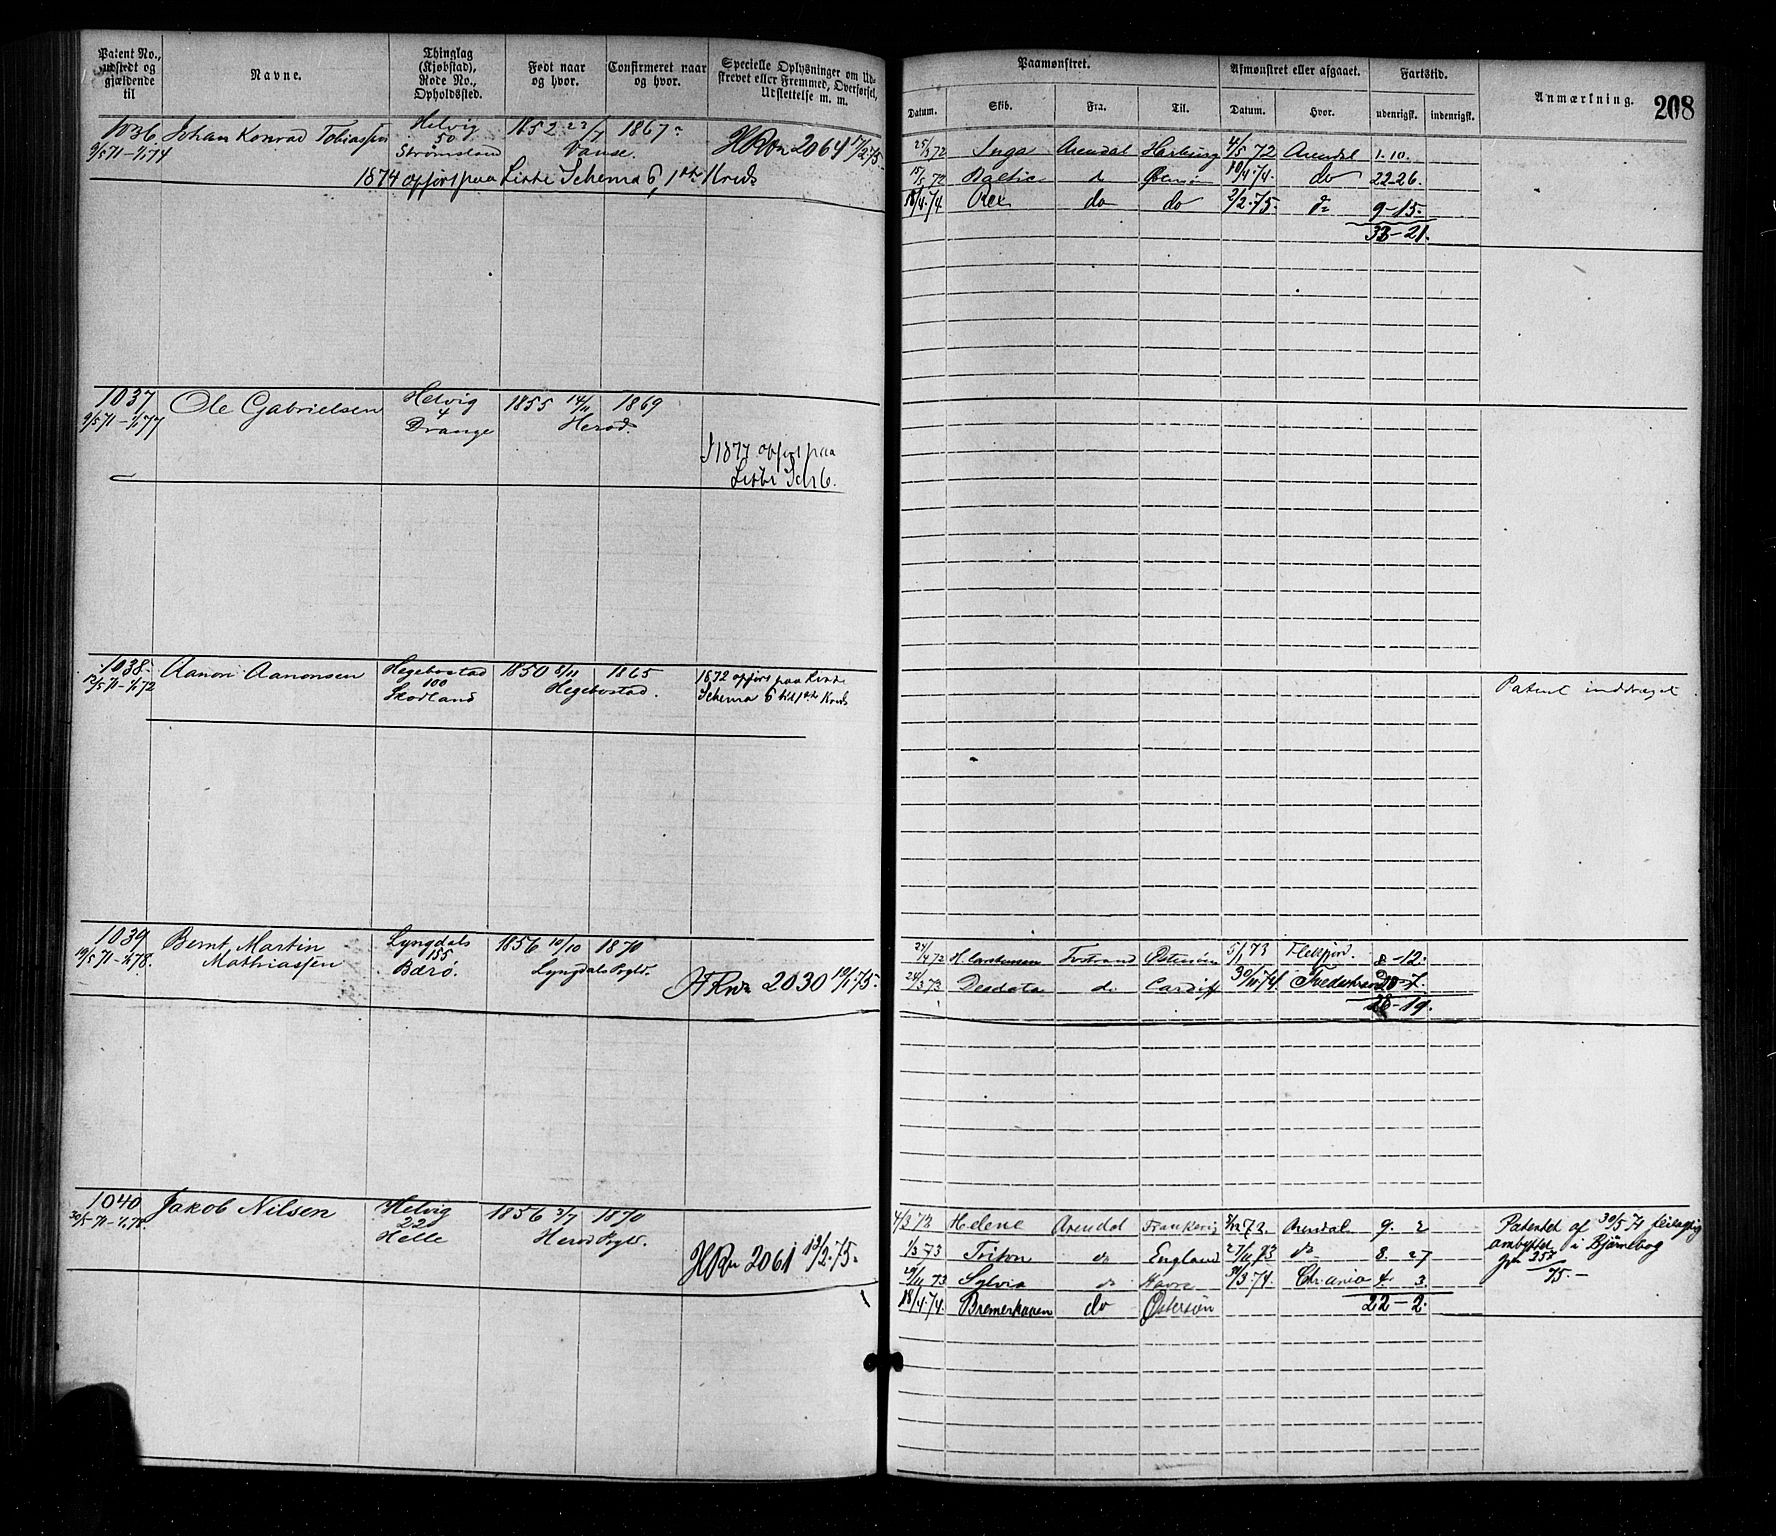 Patent No., udstedt og gjældende til
Navne.
Thinglag (Kjøbstad), Rode No., Opholdssted.
Født naar og hvor.
Confirmeret naar og hvor.
Specielle Oplysninger om Udskrevet eller Fremmed, Overførsel, Udslettelse m. m.
Paamønstret.
Afmønstret eller afgaaet.
Fartstid.
Anmærkning.
208
Datum. Skib. Fra. Til. Datum. Hvor. udenrigsk. indenrigsk.
1036 Johan Konrad Tobiassen Helvig 1852 23/7 1867
9/5 71 - 1/1 74 50 Vanse. HRNo 2064 17/2 75.
Strømsland
1874 opført paa Liste Schema 6, 1ste Kreds
25/3 72 Inga Arendal Harburg 4/5 72 Arendal 1. 10.
15/5 72 Baltic do 18/4. 74. do 22-26.
18/4. 74 Rex do do 2/2. 75. do 9-15.
33-21.
1037 Ole Gabrielsen Helvig 1855 14/11 1869
9/5 71 - 1/1 77 4 Herod.
Drange
I 1877 opført paa
Liste Sch 6.
1038. Aanon Aanonsen Hegebostad 1850 8/11 1865 1872 opført paa Liste
12/5 71 - 1/1 72 100 Hegebostad. Schema 6 1ste Kreds
Skodland
Patent inddraget
1039 Bernt Martin Lyngdals 1856 10/10 1870
19/5 71 - 1/1 78. Mathiassen 155 Lyngdals Prgld.
Bærø. HRNo 2030 19/1 75.
24/4 72 Fostrand Østersøen 5/1 73 Flekkfjord. 8-12.
24/3 73 Deodata do Cardiff 30/11 74 20-7.
28-19.
1040 Jakob Nilsen Helvig 1856 3/7 1870
30/5 71 - 1/1 78. 220 Herod Prgld.
Helle HRNo 2061 13/2. 75.
4/3 73 Helene Arendal Arendal 9. 2
1/3 73 Triton do England 27/11 73 do 8 27
29/11 73 Sylvia do Havre 31/3 74. Chr.ania 4. 3.
18/4. 74. Bremerhaven do Østersøen 22-2.
Patentet af 30/5 71
ombyttet i Bjørnebog
357/75. -